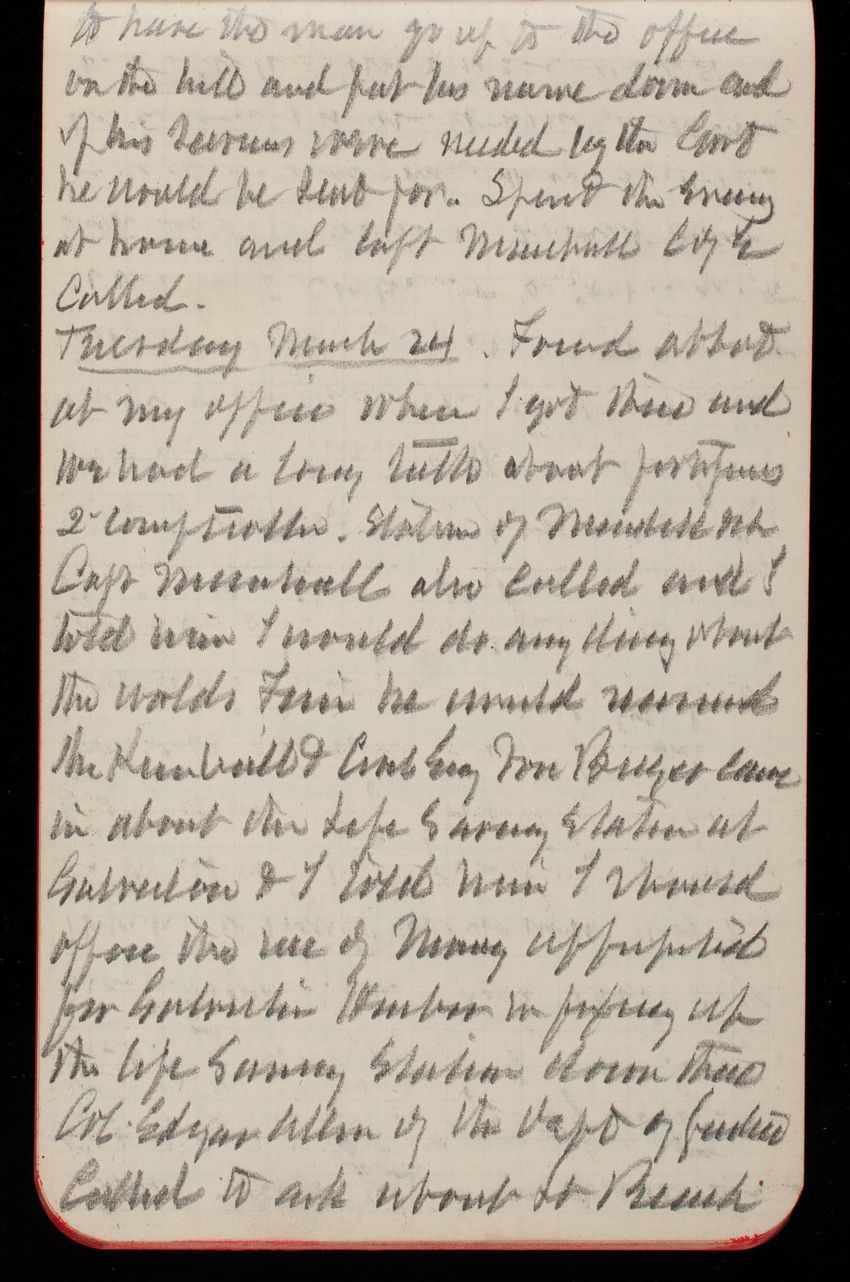 to have the man go up to the office
on the hill and put his name down and
if his services were needed by the Govt
he would be sent for. Spent the Evening
at home and Capt Marshall
Called.
Tuesday March 24. Found Abbot
at my office when I got there and
We had a long talk about
2 Comptroller. Station of
Capt Marshall also called and I
told him I would do any thing about
the Worlds Fair he would
the & came
in about the Life Saving Station at
Galveston & I told him I should
oppose the use of Money
for Galveston Harbor in fixing up
the Life Saving Station down there
Col. Edgar Allen of the Dept of Justice
Called to ask about